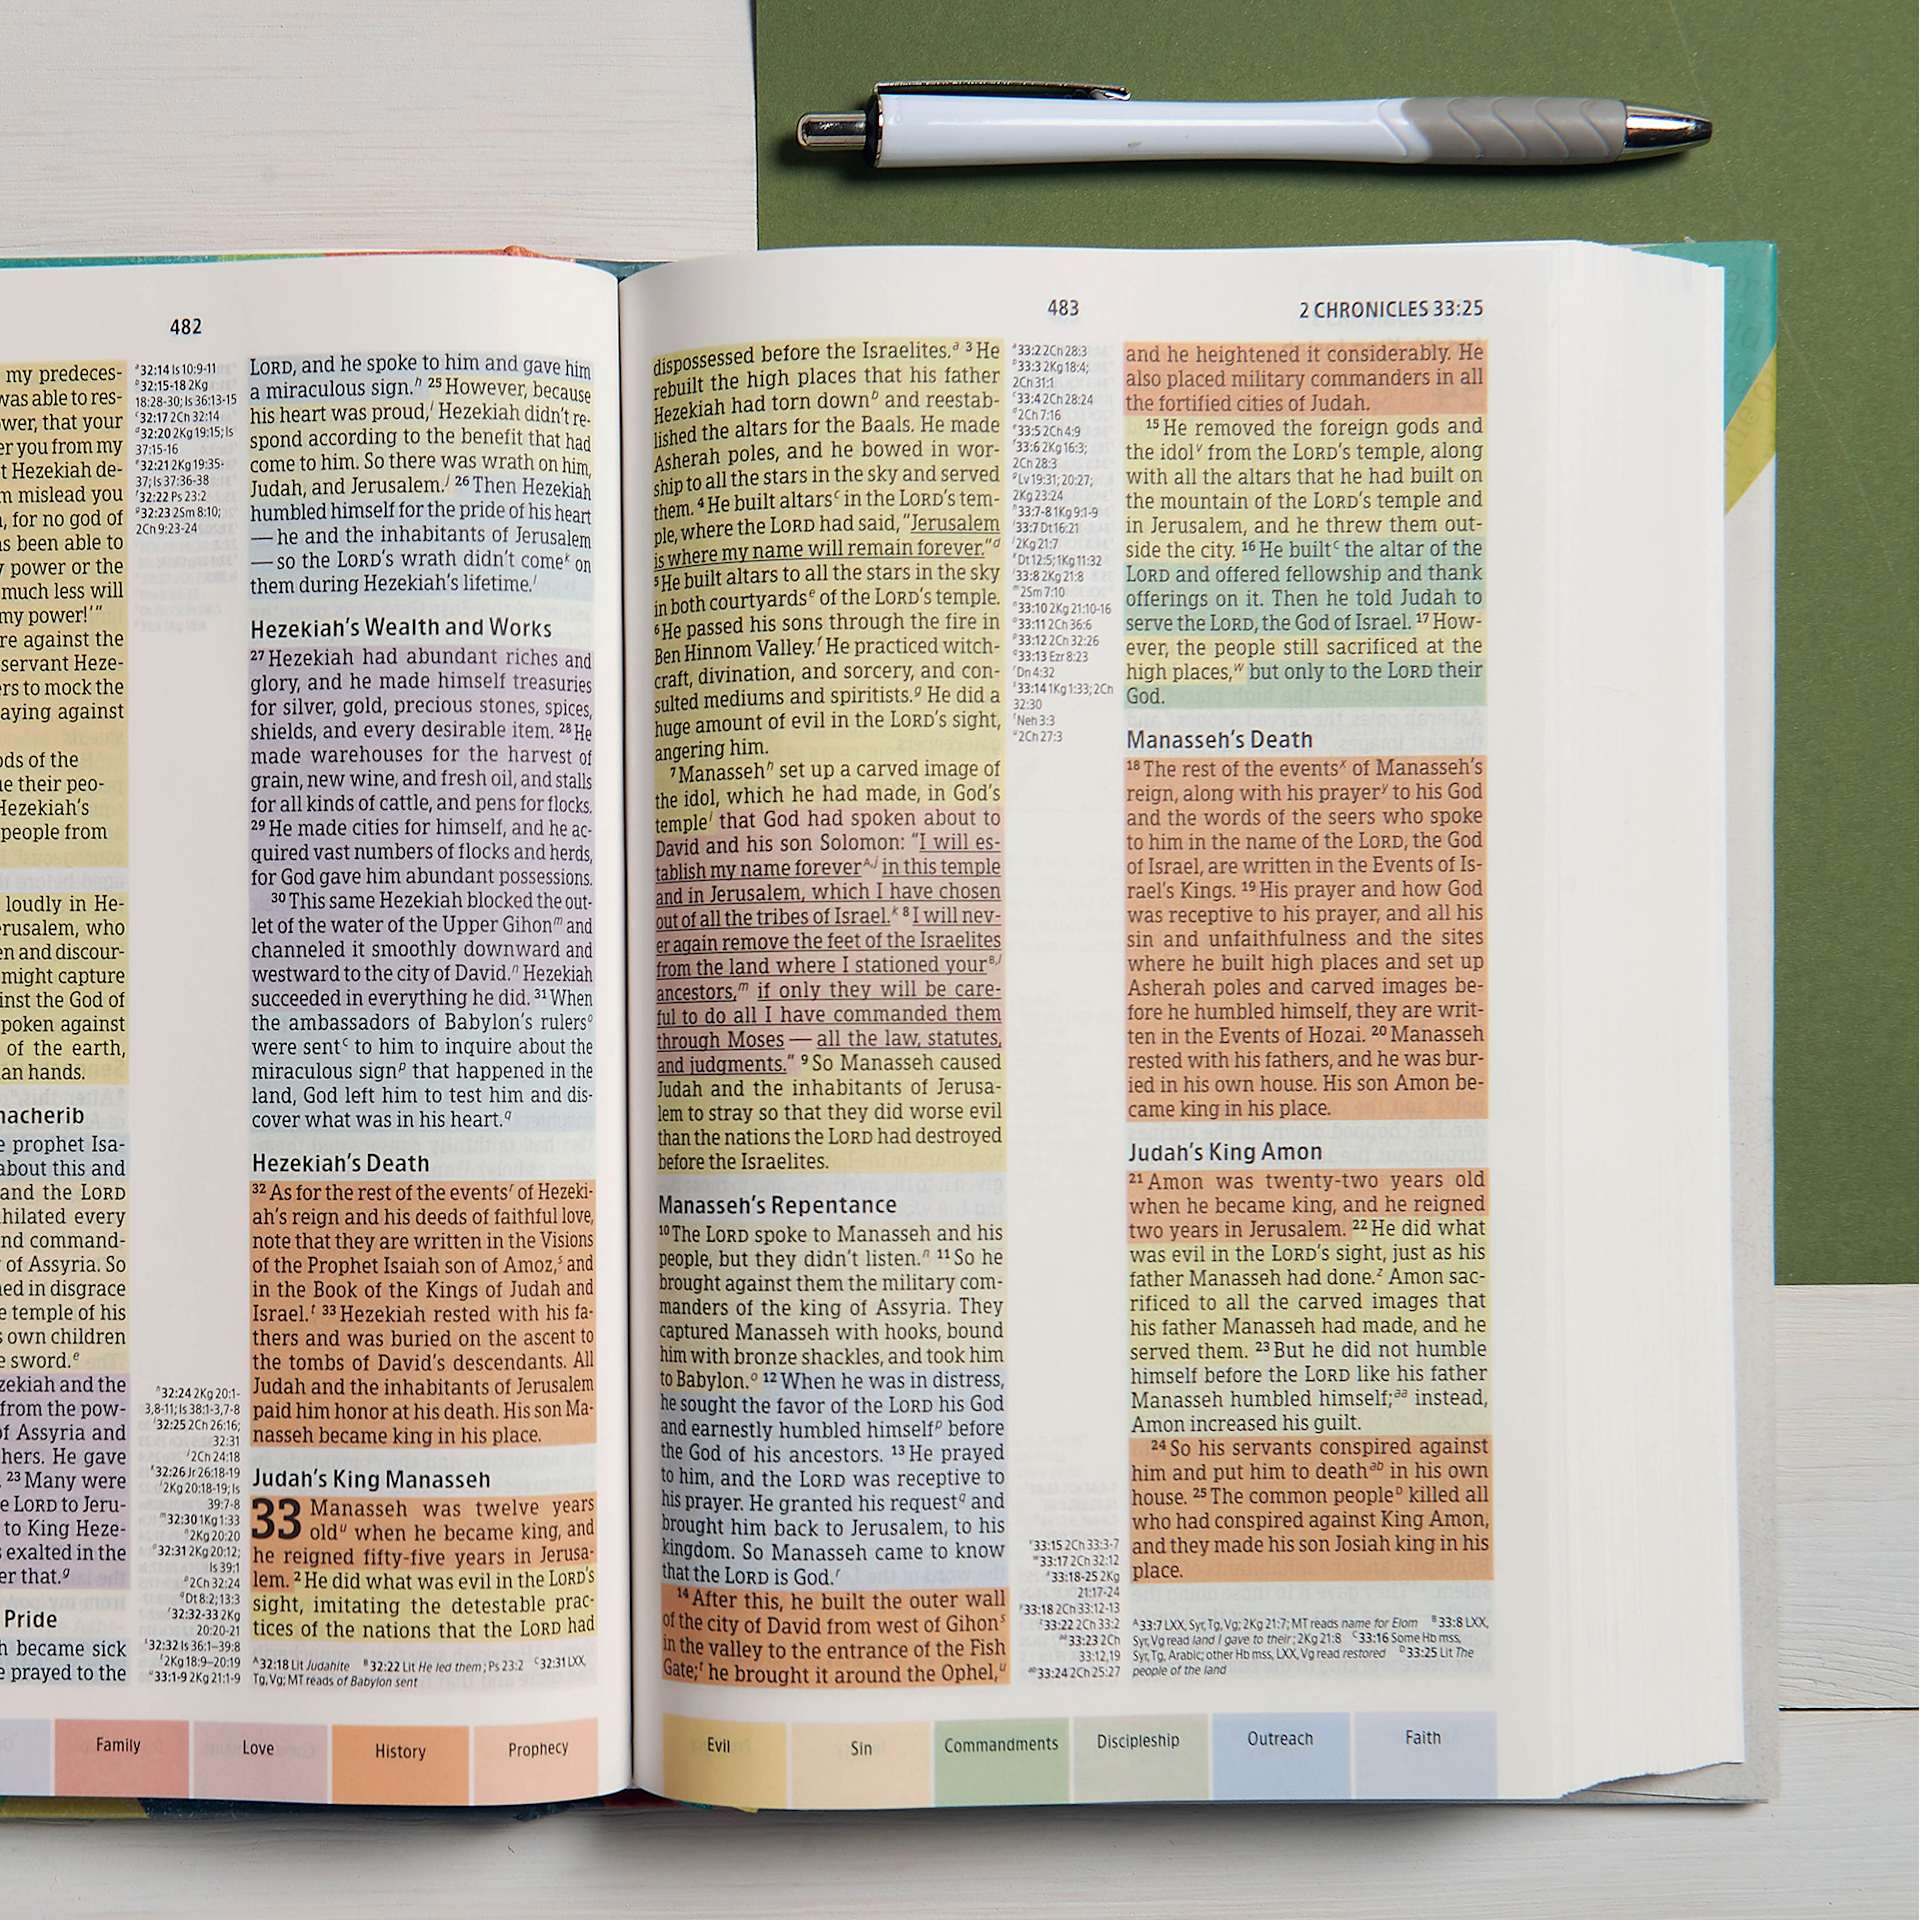 482
my predeces-
was able to res-
ower, that your
er you from my
t Hezekiah de-
m mislead you
, for no god of
as been able to
y power or the
much less will
my power!'"
re against the
servant Heze-
ers to mock the
aying against
ods of the
ue their peo-
Hezekiah's
people from
loudly in He-
erusalem, who
en and discour-
might capture
inst the God of
poken against
of the earth,
an hands.
nacherib
e prophet Isa-
about this and
and the LORD
hilated every
nd command-
of Assyria. So
ned in disgrace
e temple of his
s own children
e sword.e
zekiah and the
from the pow-
of Assyria and
hers. He gave
. 23 Many were
e LORD to Jeru-
to King Heze-
s exalted in the
er that.g
Pride
h became sick
e prayed to the
a32:14 Is 10:9-11
b32:15-18 2Kg
18:28-30; Is 36:13-15
c32:17 2Ch 32:14
d32:20 2Kg 19:15; Is
37:15-16
e32:21 2Kg 19:35-
37; Is 37:36-38
f32:22 Ps 23:2
g32:23 2Sm 8:10;
2Ch 9:23-24
h32:24 2Kg 20:1-
3,8-11; Is 38:1-3,7-8
i32:25 2Ch 26:16;
32:31
j2Ch 24:18
k32:26 Jr 26:18-19
l2Kg 20:18-19; Is
39:7-8
m32:30 1Kg 1:33
n2Kg 20:20
o32:31 2Kg 20:12;
Is 39:1
p2Ch 32:24
qDt 8:2; 13:3
r32:32-33 2Kg
20:20-21
s32:32 Is 36:1–39:8
t2Kg 18:9–20:19
u33:1-9 2Kg 21:1-9
LORD, and he spoke to him and gave him
a miraculous sign.h 25 However, because
his heart was proud,i Hezekiah didn't re-
spond according to the benefit that had
come to him. So there was wrath on him,
Judah, and Jerusalem.j 26 Then Hezekiah
humbled himself for the pride of his heart
— he and the inhabitants of Jerusalem
— so the LORD's wrath didn't comek on
them during Hezekiah's lifetime.l
Hezekiah's Wealth and Works
27 Hezekiah had abundant riches and
glory, and he made himself treasuries
for silver, gold, precious stones, spices,
shields, and every desirable item. 28 He
made warehouses for the harvest of
grain, new wine, and fresh oil, and stalls
for all kinds of cattle, and pens for flocks.
29 He made cities for himself, and he ac-
quired vast numbers of flocks and herds,
for God gave him abundant possessions.
30 This same Hezekiah blocked the out-
let of the water of the Upper Gihonm and
channeled it smoothly downward and
westward to the city of David.n Hezekiah
succeeded in everything he did. 31 When
the ambassadors of Babylon's rulerso
were sentC to him to inquire about the
miraculous signp that happened in the
land, God left him to test him and dis-
cover what was in his heart.q
Hezekiah's Death
32 As for the rest of the eventsr of Hezeki-
ah's reign and his deeds of faithful love,
note that they are written in the Visions
of the Prophet Isaiah son of Amoz,s and
in the Book of the Kings of Judah and
Israel.t 33 Hezekiah rested with his fa-
thers and was buried on the ascent to
the tombs of David's descendants. All
Judah and the inhabitants of Jerusalem
paid him honor at his death. His son Ma-
nasseh became king in his place.
Judah's King Manasseh
33 Manasseh was twelve years
oldu when he became king, and
he reigned fifty-five years in Jerusa-
lem. 2 He did what was evil in the LORD's
sight, imitating the detestable prac-
tices of the nations that the LORD had
A32:18 Lit Judahite B32:22 Lit He led them; Ps 23:2 C32:31 LXX,
Tg, Vg; MT reads of Babylon sent
Family
Love
History
Prophecy
483
2 CHRONICLES 33:25
dispossessed before the Israelites.a 3 He
rebuilt the high places that his father
Hezekiah had torn downb and reestab-
lished the altars for the Baals. He made
Asherah poles, and he bowed in wor-
ship to all the stars in the sky and served
them. 4 He built altarsc in the LORD's tem-
ple, where the LORD had said, "Jerusalem
is where my name will remain forever."d
5 He built altars to all the stars in the sky
in both courtyardse of the LORD's temple.
6 He passed his sons through the fire in
Ben Hinnom Valley.f He practiced witch-
craft, divination, and sorcery, and con-
sulted mediums and spiritists.g He did a
huge amount of evil in the LORD's sight,
angering him.
7 Manassehh set up a carved image of
the idol, which he had made, in God's
templei that God had spoken about to
David and his son Solomon: "I will es-
tablish my name foreverA,j in this temple
and in Jerusalem, which I have chosen
out of all the tribes of Israel.k 8 I will nev-
er again remove the feet of the Israelites
from the land where I stationed yourB,l
ancestors,m if only they will be care-
ful to do all I have commanded them
through Moses — all the law, statutes,
and judgments." 9 So Manasseh caused
Judah and the inhabitants of Jerusa-
lem to stray so that they did worse evil
than the nations the LORD had destroyed
before the Israelites.
Manasseh's Repentance
10 The LORD spoke to Manasseh and his
people, but they didn't listen.n 11 So he
brought against them the military com-
manders of the king of Assyria. They
captured Manasseh with hooks, bound
him with bronze shackles, and took him
to Babylon.o 12 When he was in distress,
he sought the favor of the LORD his God
and earnestly humbled himselfp before
the God of his ancestors. 13 He prayed
to him, and the LORD was receptive to
his prayer. He granted his requestq and
brought him back to Jerusalem, to his
kingdom. So Manasseh came to know
that the LORD is God.r
14 After this, he built the outer wall
of the city of David from west of Gihons
in the valley to the entrance of the Fish
Gate;t he brought it around the Ophel,u
a33:2 2Ch 28:3
b33:3 2Kg 18:4;
2Ch 31:1
c33:4 2Ch 28:24
d2Ch 7:16
e33:5 2Ch 4:9
f33:6 2Kg 16:3;
2Ch 28:3
gLv 19:31; 20:27;
2Kg 23:24
h33:7-8 1Kg 9:1-9
i33:7 Dt 16:21
j2Kg 21:7
kDt 12:5; 1Kg 11:32
l33:8 2Kg 21:8
m2Sm 7:10
n33:10 2Kg 21:10-16
o33:11 2Ch 36:6
p33:12 2Ch 32:26
q33:13 Ezr 8:23
rDn 4:32
s33:14 1Kg 1:33; 2Ch
32:30
tNeh 3:3
u2Ch 27:3
v33:15 2Ch 33:3-7
w33:17 2Ch 32:12
x33:18-25 2Kg
21:17-24
y33:18 2Ch 33:12-13
z33:22 2Ch 33:2
aa33:23 2Ch
33:12,19
ab33:24 2Ch 25:27
and he heightened it considerably. He
also placed military commanders in all
the fortified cities of Judah.
15 He removed the foreign gods and
the idolv from the LORD's temple, along
with all the altars that he had built on
the mountain of the LORD's temple and
in Jerusalem, and he threw them out-
side the city. 16 He builtC the altar of the
LORD and offered fellowship and thank
offerings on it. Then he told Judah to
serve the LORD, the God of Israel. 17 How-
ever, the people still sacrificed at the
high places,w but only to the LORD their
God.
Manasseh's Death
18 The rest of the eventsx of Manasseh's
reign, along with his prayery to his God
and the words of the seers who spoke
to him in the name of the LORD, the God
of Israel, are written in the Events of Is-
rael's Kings. 19 His prayer and how God
was receptive to his prayer, and all his
sin and unfaithfulness and the sites
where he built high places and set up
Asherah poles and carved images be-
fore he humbled himself, they are writ-
ten in the Events of Hozai. 20 Manasseh
rested with his fathers, and he was bur-
ied in his own house. His son Amon be-
came king in his place.
Judah's King Amon
21 Amon was twenty-two years old
when he became king, and he reigned
two years in Jerusalem. 22 He did what
was evil in the LORD's sight, just as his
father Manasseh had done.z Amon sac-
rificed to all the carved images that
his father Manasseh had made, and he
served them. 23 But he did not humble
himself before the LORD like his father
Manasseh humbled himself;aa instead,
Amon increased his guilt.
24 So his servants conspired against
him and put him to deathab in his own
house. 25 The common peopleD killed all
who had conspired against King Amon,
and they made his son Josiah king in his
place.
A33:7 LXX, Syr, Tg, Vg; 2Kg 21:7; MT reads name for Elom B33:8 LXX,
Syr, Vg read land I gave to their; 2Kg 21:8 C33:16 Some Hb mss,
Syr, Tg, Arabic; other Hb mss, LXX, Vg read restored D33:25 Lit The
people of the land
Evil
Sin
Commandments
Discipleship
Outreach
Faith